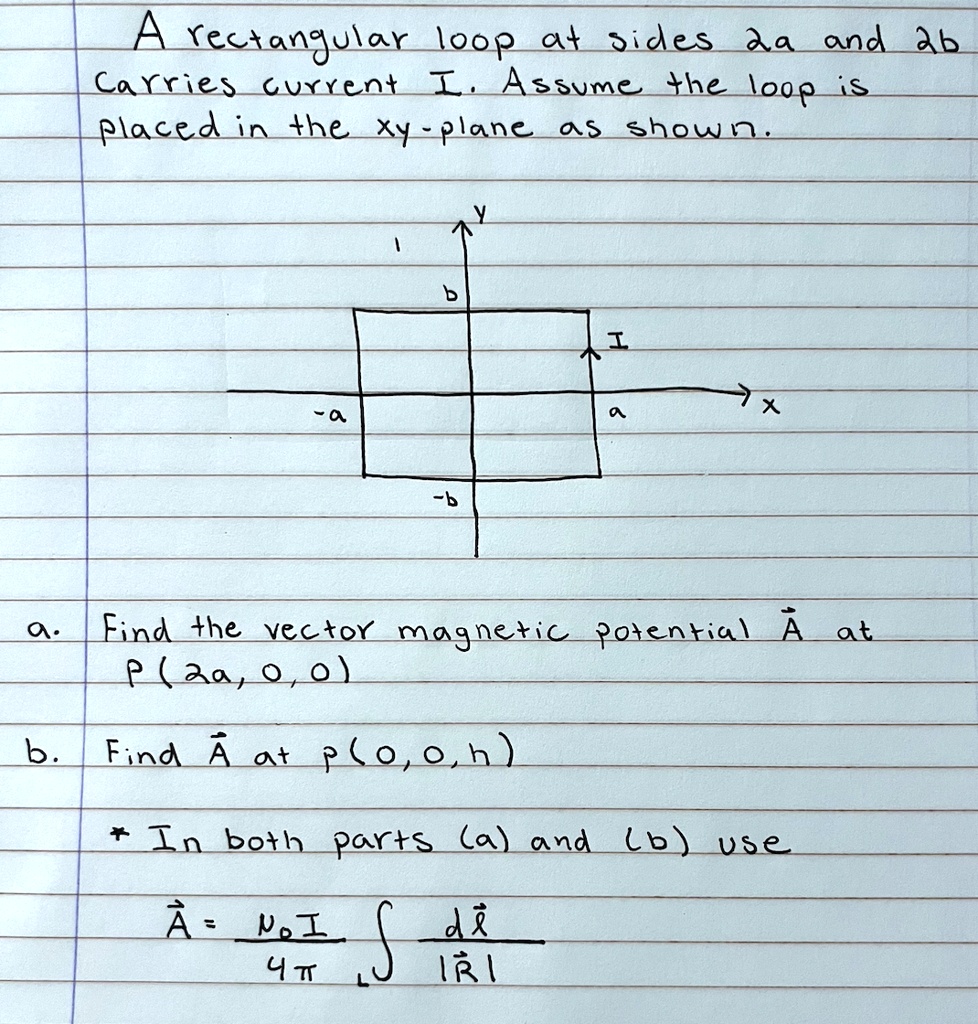 A rectangular loop at sides 2a and 2b
carries current I. Assume the loop is
placed in the xy-plane as shown.
y
b
I
-a
a
x
-b
a. Find the vector magnetic potential A⃗ at
P(2a, 0, 0)
b. Find A⃗ at p(0,0,h)
* In both parts (a) and (b) use
A⃗ = μ₀I/4π ∫L dl⃗/|R⃗|